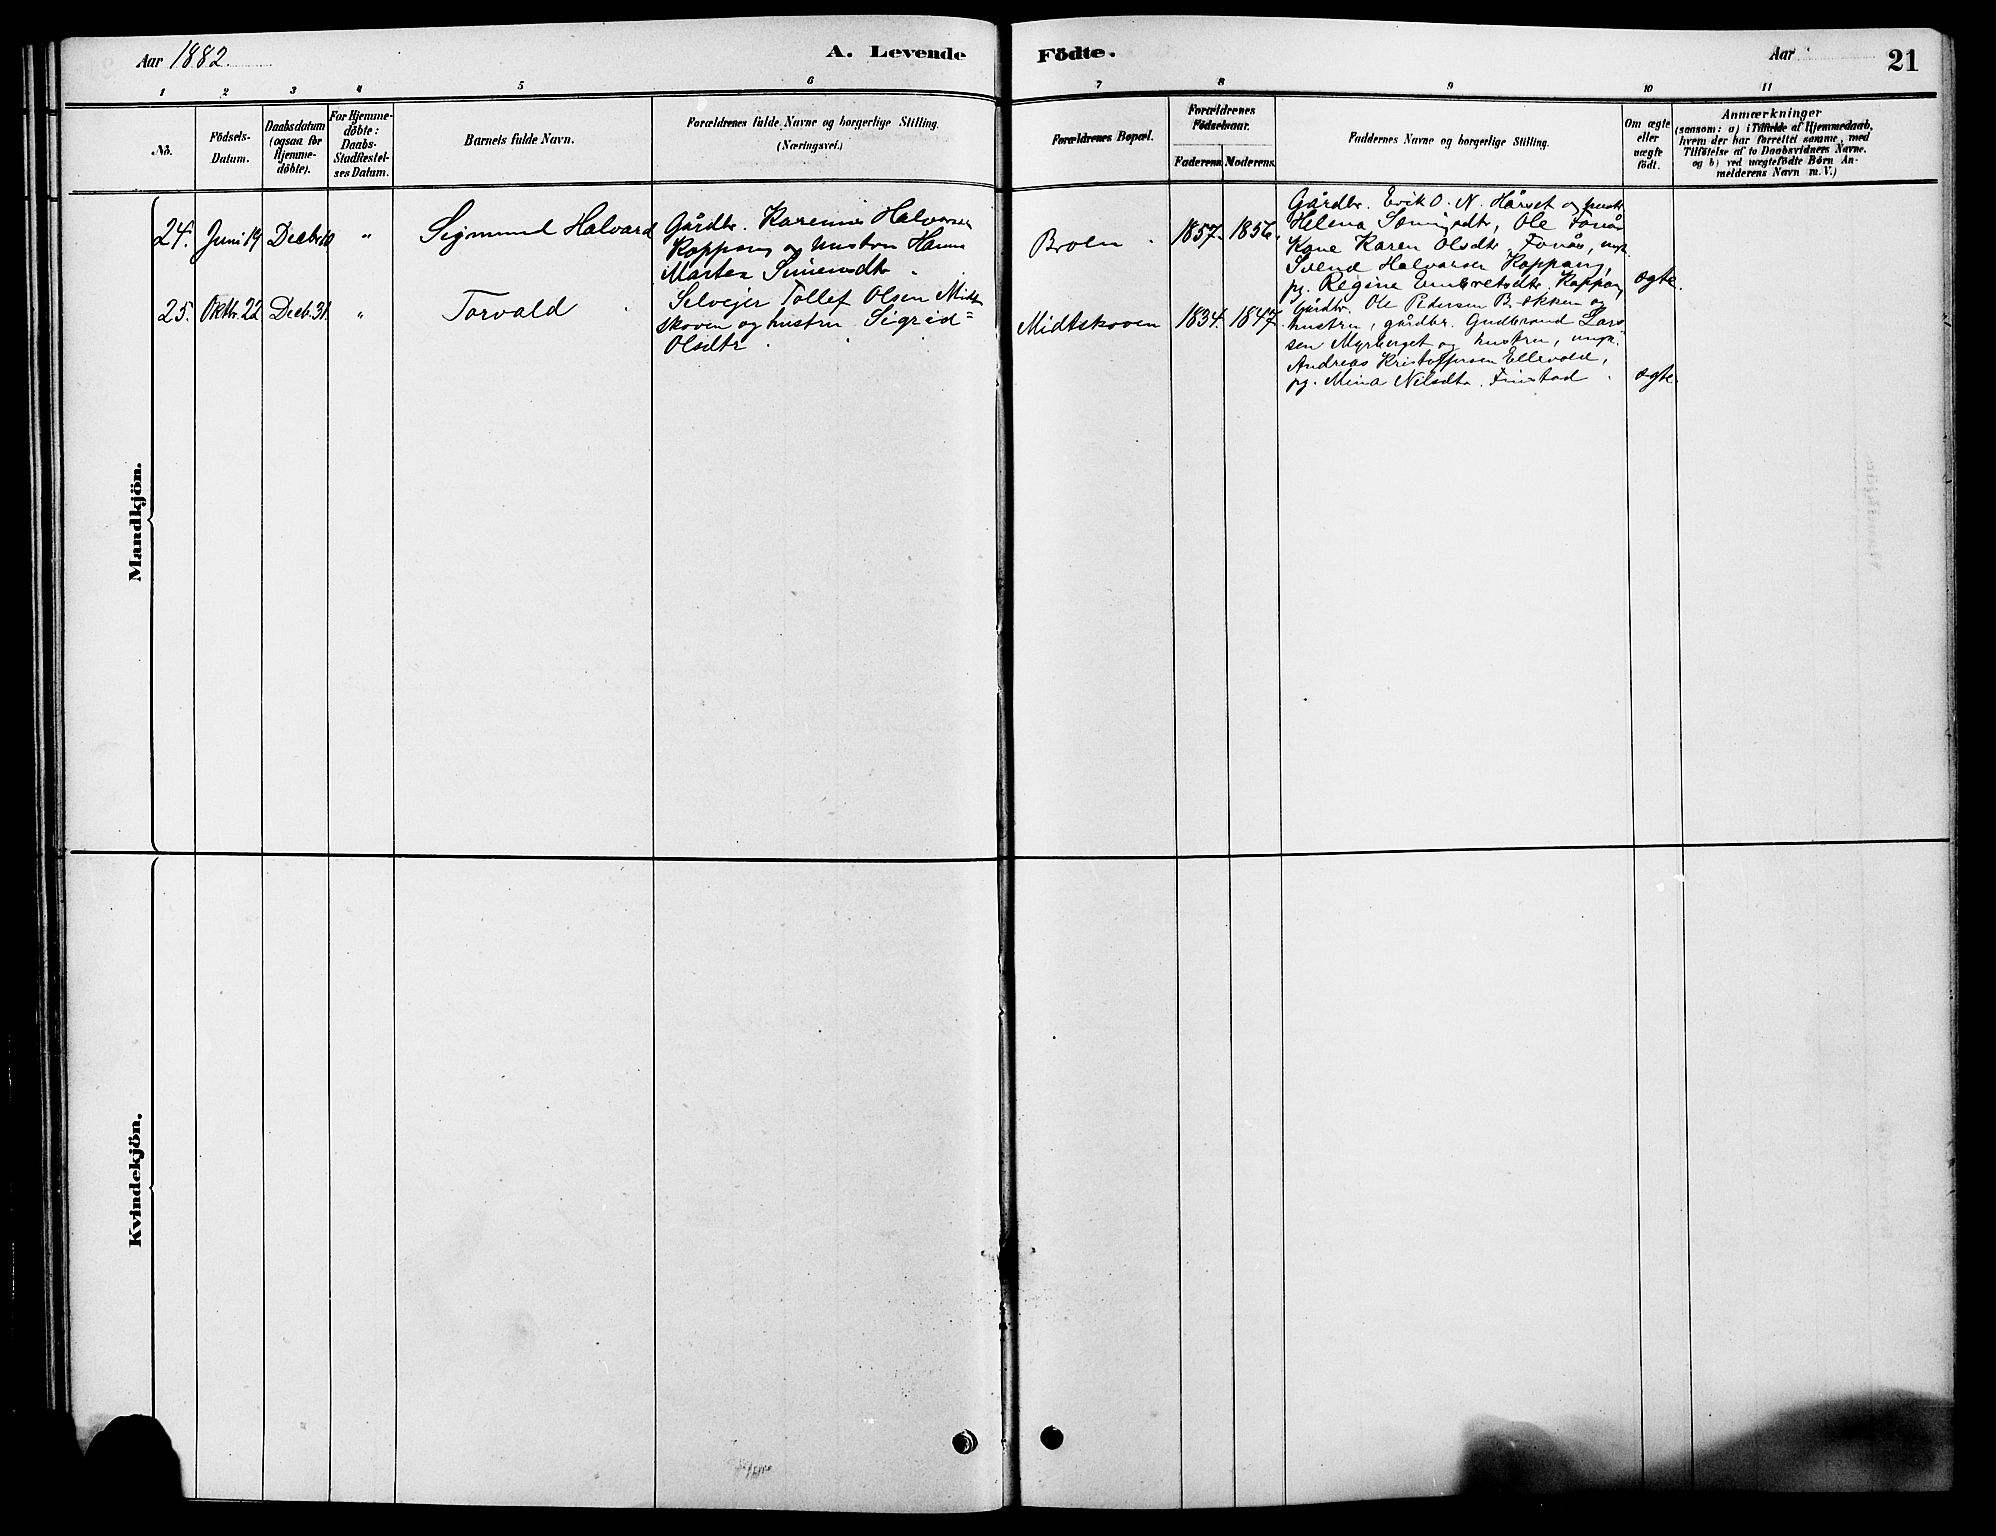 Aar 1882.
A. Levende Födte.
Aar
21
1 2 3 4 5 6 7 8 9 10 11
No.
Födsels-
Datum.
Daabsdatum
(ogsaa for
Hjemme-
döbte).
For Hjemme-
döbte:
Daabs-
Stadfæstel-
ses Datum.
Barnets fulde Navn.
Forældrenes fulde Navne og borgerlige Stilling
(Næringsvei.)
Forældrenes Bopæl.
Forældrenes
Födselsaar.
Faderens. Moderens.
Faddernes Navne og borgerlige Stilling.
Om ægte
eller
uægte
födt.
Anmærkninger
(saasom: a) i Tilfælde af Hjemmedaab,
hvem der har forrettet samme, med
Tilföielse af to Daabsvidners Navne.
og b) ved uægtefödte Börn An-
melderens Navn m. V.)
Mandkjön.
24. Juni 19 Decbr 10 " Sigmund Halvard
Gårdbr. Karenius Halvorsen
Koppang og hustru Hanna
Martea Simensdtr
Broen 1857. 1856.
Gårdbr. Erik O. N. Hårset og hustr
Helena Sæmingsdtr, Ole Fonås
Kone Karen Olsdtr. Fonås, ungk.
Svend Halvorsen Koppang,
pg. Regine Embretsdtr. Koppang
ægte.
25. Oktbr. 22 Decb. 31. " Torvald
Selvejer Tollef Olsen Midt
skoven og hustru Sigrid
Olsdtr
Midtskoven 1834. 1847.
Gårdbr. Ole Pedersen Bækken og
hustru, gårdbr. Gudbrand Lars
sen Myrberget og hustru, ungk.
Andreas Kristoffersen Ellevold,
pg. Mina Nilsdtr. Finstad
ægte.
Kvindekjön.